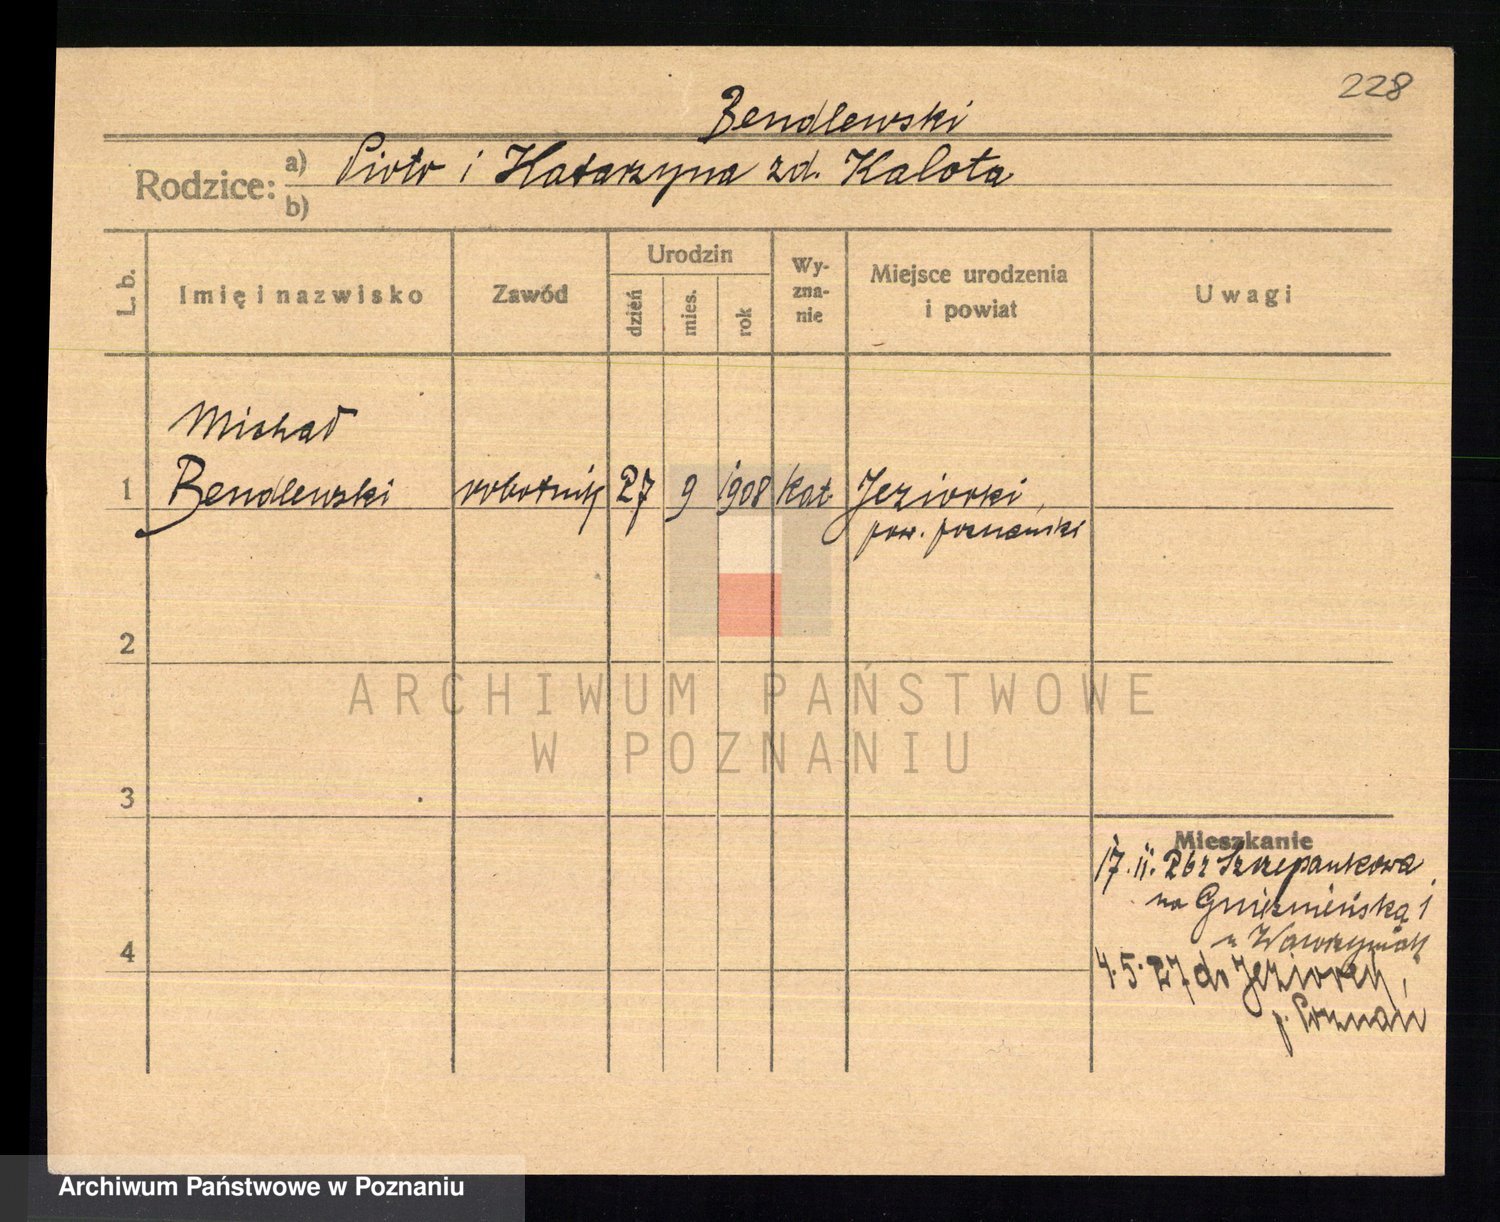 228
Bendlewski
Rodzice: a) Piotr i Katarzyna zd. Kalota
b)
L. b.
Imię i nazwisko
Zawód
Urodzin
dzień
mies.
rok
Wy-
zna-
nie
Miejsce urodzenia
i powiat
Uwagi
Michał
1 Bendlewski robotnik 27 9 1908 kat Jeziorki,
pow. poznański
2
ARCHIWUM PAŃSTWOWE
W POZNANIU
3
Mieszkanie
17. 11. 26 z Szczepankowa
na Gnieźnieńską 1
u Wawrzyniak
4
4. 5. 27 do Jeziorek,
p. Poznań
Archiwum Państwowe w Poznaniu